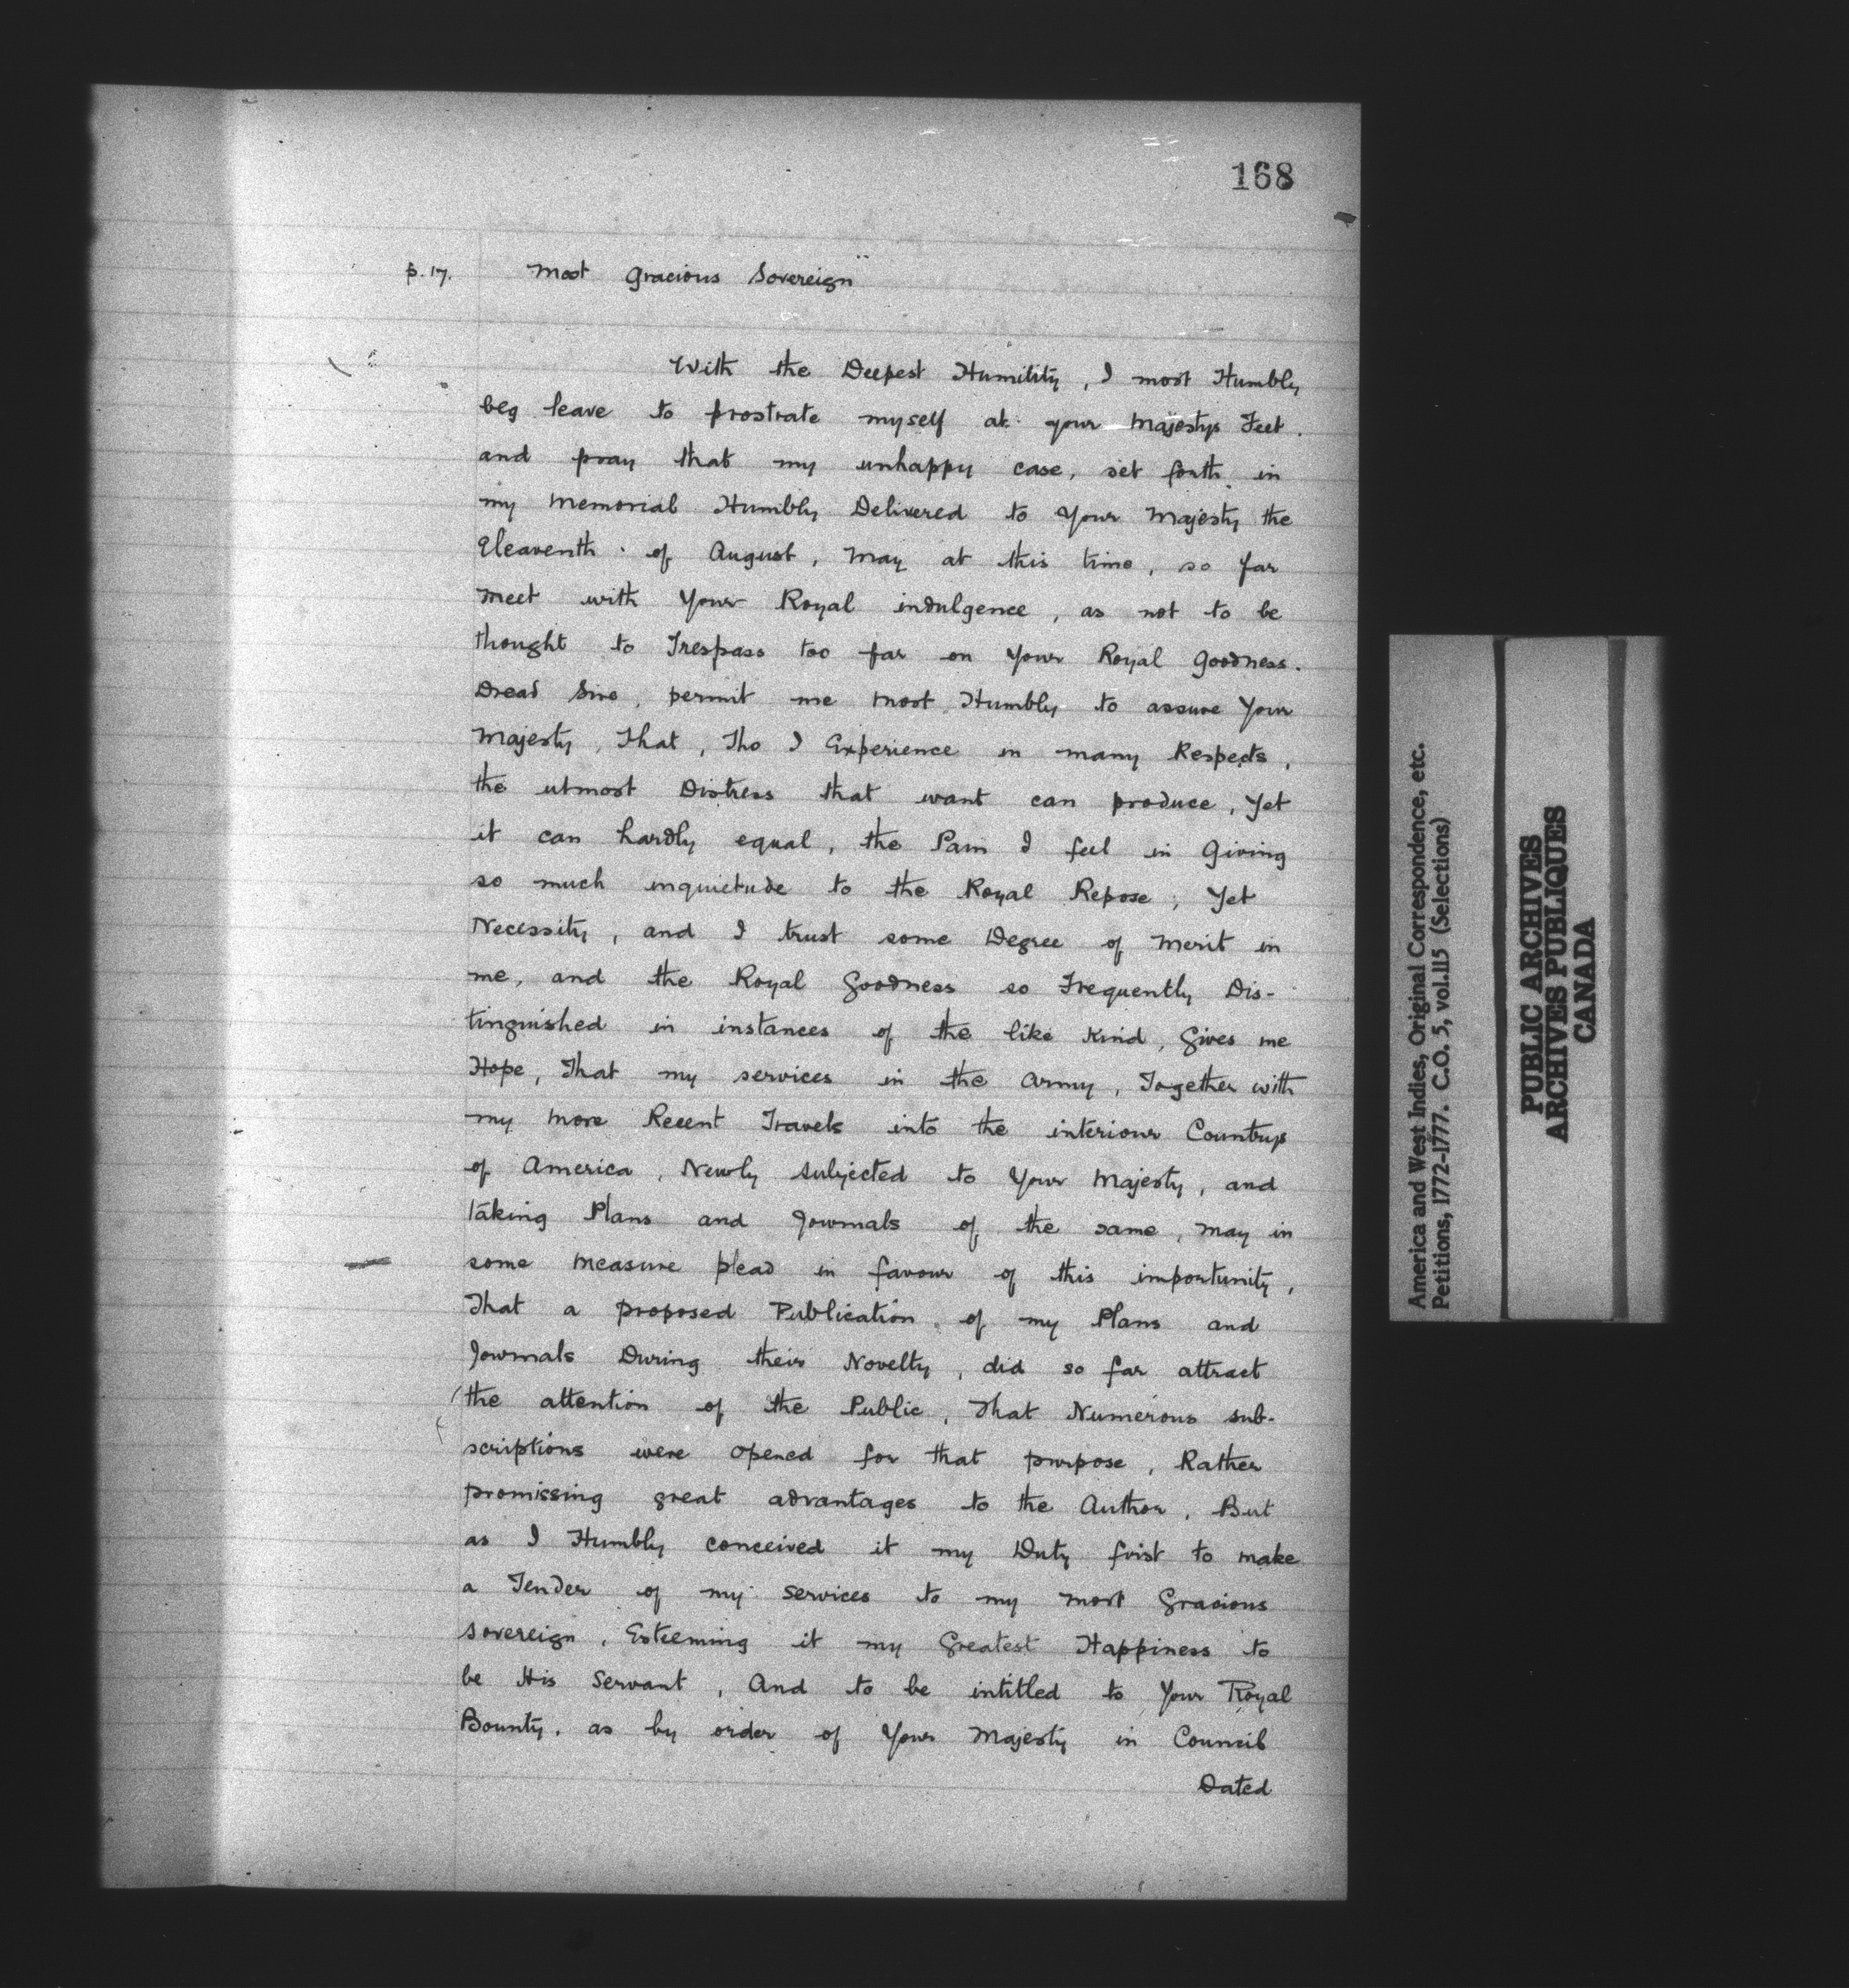 168
p. 17. Most Gracious Sovereign
With the Deepest Humility, I most Humbly
beg leave to prostrate myself at your Majestys Feet.
and pray that my unhappy case, set forth in
my Memorial Humbly Delivered to Your Majesty the
Eleaventh of August, May at this time, so far
meet with Your Royal indulgence, as not to be
thought to Trespass too far on Your Royal Goodness.
Dread Sire, permit me most Humbly to assure Your
Majesty, That, Tho I Experience in many Respects,
the utmost Distress that want can produce, Yet
it can hardly equal, the Pain I feel in Giving
so much inquietude to the Royal Repose; Yet
Necessity, and I trust some Degree of Merit in
me, and the Royal Goodness so Frequently Dis-
tinguished in instances of the like Kind, Gives me
Hope, That my services in the Army, Together with
my more Recent Travels into the interiour Countrys
of America, Newly subjected to Your Majesty, and
taking Plans and Journals of the same, may in
some measure plead in favour of this importunity,
That a proposed Publication of my Plans and
Journals During their Novelty, did so far attract
the attention of the Public, That Numerous sub-
scriptions were opened for that purpose, Rather
promissing great advantages to the Author, But
as I Humbly conceived it my Duty first to make
a Tender of my services to my most Gracious
Sovereign, Esteeming it my Greatest Happiness to
be His Servant, And to be intitled to Your Royal
Bounty, as by order of Your Majesty in Council
Dated
America and West Indies, Original Correspondence, etc.
Petitions, 1772-1777. C.O. 5, vol.115 (Selections)
PUBLIC ARCHIVES
ARCHIVES PUBLIQUES
CANADA